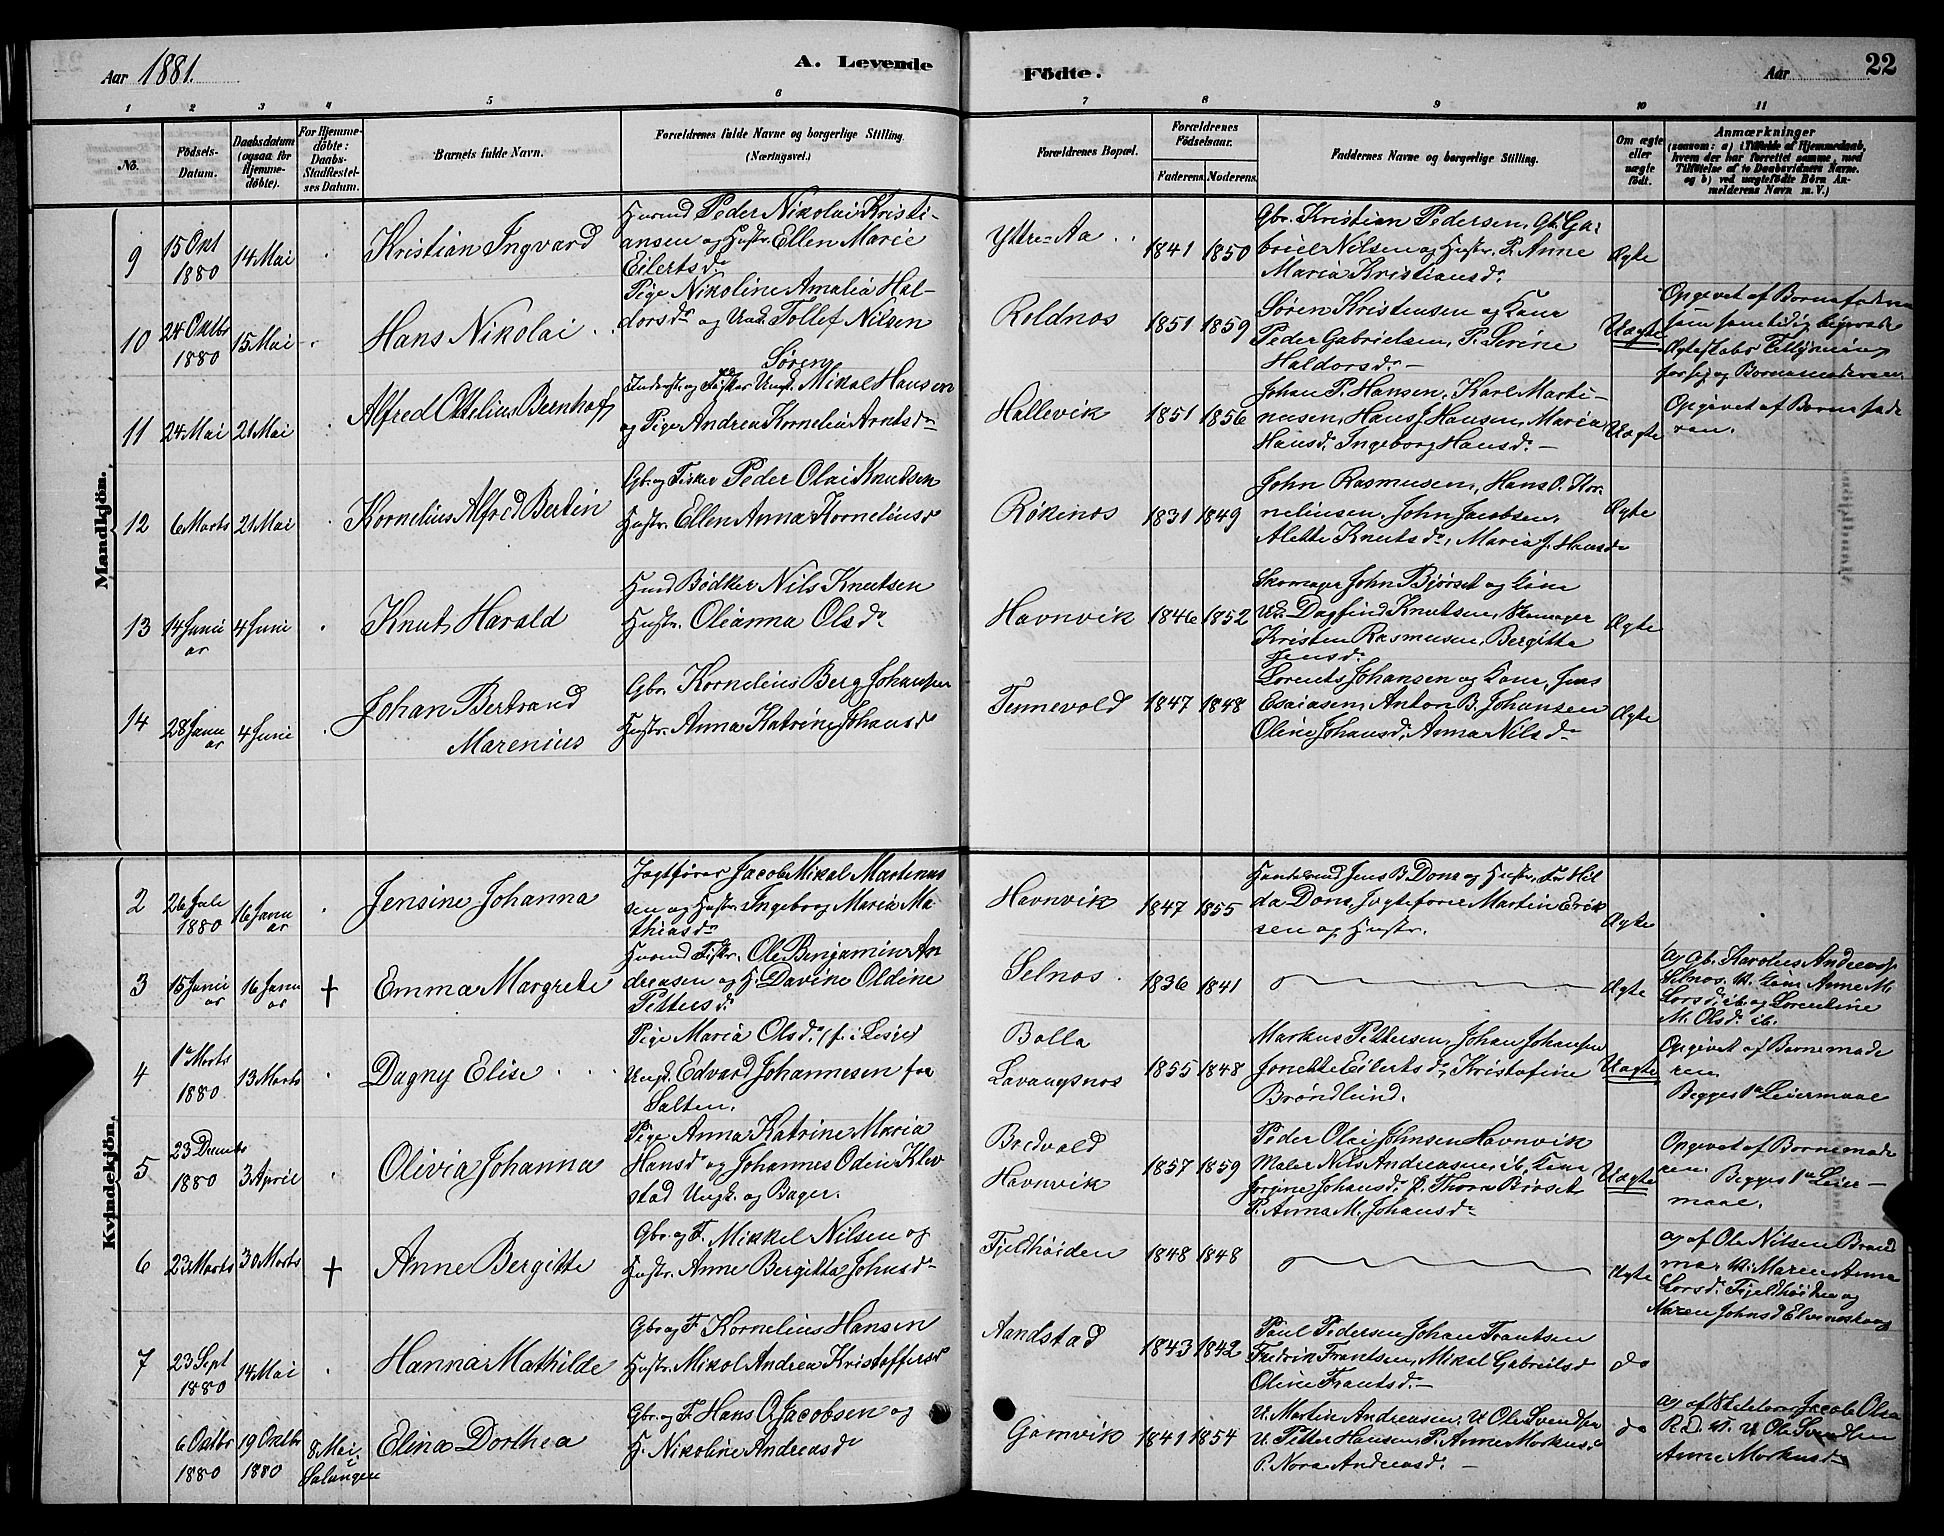 Aar 1881.
A. Levende
Födte.
Aar
22
1 2 3 4 5 6 7 8 9 10 11
No.
Födsels-
Datum.
Daabsdatum
(ogsaa for
Hjemme-
döbte).
For Hjemme-
döbte:
Daabs-
Stadfæstel-
ses Datum.
Barnets fulde Navn.
Forældrenes fulde Navne og borgerlige Stilling.
(Næringsvei.)
Forældrenes Bopæl.
Forældrenes
Födselsaar.
Faderens. Moderens.
Faddernes Navne og borgerlige Stilling.
Om ægte
eller
uægte
födt.
Anmærkninger
(saasom: a) i Tilfælde af Hjemmedaab,
hvem der har forrettet samme, med
Tilföielse af to Daabsvidners Navne.
og b) ved uægtefödte Börn An-
melderens Navn m. V.)
Mandkjön.
9
15 Okt
1880
14 Mai
Kristian Ingvard
Huusmd Peder Nikolai Kristi-
ansen og Hustr. Ellen Marie
Eilertsdr
Yttre-Aa
1841 1850
Gbr. Kristian Pedersen, Gb. Ga-
briel Nilsen og Hustr, P. Anne
Maria Kristiansdr
Ægte
10
24 Oktbr
1880
15 Mai
Hans Nikolai
Pige Nikoline Amalia Hal-
dorsdr og Ungk. Tollef Nilsen
Roldnos
1851 1859
Søren Kristensen og Kone
Peder Gabrielsen, P. Serine
Haldorsdr
Uægte
Opgivet af Barnefaderen
som samtidig begjærede
Ægteskabs Tillysning
for sig og Barnemoderen
11
24 Mai
21 Mai
Alfred Ottelius Bernhof
Søren
Inderst og Fisker Ungk. Mikal Hansen
og Pige Andrea Kornelia Arntsdr
Hallevik
1851 1856
Johan P. Hansen, Karl Marti-
nusen, Hans J Hansen, Maria
Hansdr Ingeborg Hansdr
Uægte
Opgivet af Barnefade
ren.
12
6 Marts
21 Mai
Kornelius Alfred Bertin
Gbr. og Fisker Peder Olai Knutsen
Hustr. Ellen Anna Korneliusdr
Røkenes
1831 1849
John Rasmusen, Hans O. Kor-
neliusen, John Jacobsen,
Alette Knutsdr, Maria J. Hansdr
Ægte
13
14 Janu
ar
4 Juni
Knut Harald
Husmd Bødker Nils Knutsen
Hustr. Olianna Olsdr
Havnvik
1846 1852
Skomager John Bjørset og Kone
Uk. Dagfind Knutsen, Skomager
Kristen Rasmusen, Bergitta
Jensdr
Ægte
14
28 Janu
ar
4 Juni
Johan Bertrand
Marenius
Gbr. Kornelius Berg Johansen
Hustr. Anna Katrine Johansdr
Tennevold
1847 1848
Lorents Johansen og Kone, Jens
Esaiasen, Anton B. Johansen
Oline Johansdr, Anna Nilsdr
Ægte
Kvindekjön.
2
26 Juli
1880
16 Janu
ar
Jensine Johanna
Jagtfører Jacob Mikal Martinus
sen og Hustr. Ingeborg Maria Ma
thiasdr
Havnvik
1847 1855
Handelsmd Jens B. Dons og Hustr, Frk Hil
da Dons, Jagtefører Martin Erik
sen og Hustr.
Ægte
3
15 Janu
ar
16 Janu
ar
+
Emma Margrete
Huusmd Fiskr. Ole Benjamin An
dreasen og H. Davine Oldine
Pettersdr
Selnos
1836 1841
Ægte
a) Gb. Karolius Andreasen
Selnos, b. Kone Anne M.
Larsdr ib. og Lorentine
M. Olsdr ib.
4
1ste Marts
1880
13 Marts
Dagny Elise
Pige Maria Olsdr (f. i Lesje)
Ungk. Edvard Johannesen fra
Salten.
Bolla
Lavangsnos
1855 1848
Markus Pettersen, Johan Johansen
Jonette Eilertsdr, Kristofine
Brøndlund.
Uægte
Opgivet af Barnemode
ren
Begges 1ste Leiermaal
5
23 Decmbr
1880
3 April
Olivia Johanna
Pige Anna Katrine Maria
Hansdr og Johannes Odin Klev
stad Ungk. og Bager.
Bredvold
Havnvik
1857 1859
Peder Olai Johnsen Havnvik
Maler Nils Andreasen, ib, Kone
Jorgine Johansdr P. Thora Brøset
P. Anna M. Johansdr
Uægte
Opgivet af Barnemode
ren. Begges 1ste Leier-
maal.
6
23 Marts
30 Marts
+
Anne Bergitte
Gbr. og F. Mikkel Nilsen og
Hustr. Anne Bergitta Johnsdr
Fjeldhøiden
1848 1848
Ægte
a) af Ole Nilsen Brand
mo, b. Maren Anna
Larsdr Fjeldhøiden og
Maren Johnsdr Elvenskog
7
23 Sept
1880
14 Mai
Hanna Mathilde
Gbr og F. Kornelius Hansen
Hustr. Mikal Andrea Kristoffersdr
Aandstad
1843 1842
Paul Pedersen Johan Frantsen
Fredrik Frantsen, Mikal Gabrielsdr
Oline Frantsdr
do
6 Oktbr
1880
19 Oktbr
1880
8 Mai
i
Salangen
Elina Dorthea
Gbr. og F. Hans O. Jacobsen og
H. Nikoline Andreasdr
Gamvik
1841 1854
U. Martin Andreasen, U Ole Svendsen
U. Petter Hansen, P. Anne Markusdr
P. Nora Andreasdr
do
Anne Markusdr